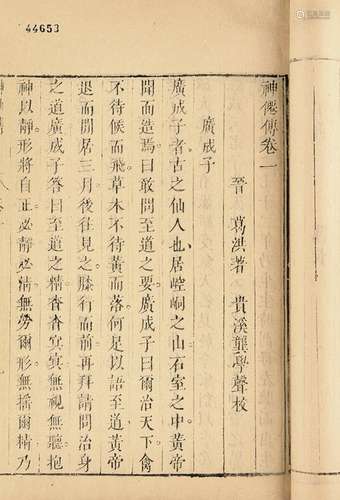 44653
神僊傳卷一
晉 葛洪著 貴溪龔學聲校
廣成子
廣成子者古之仙人也居崆峒之山石室之中黃帝
聞而造焉曰敢問至道之要廣成子曰爾治天下禽
不待候而飛草木不待黃而落何足以語至道黃帝
退而閒居三月後往見之膝行而前再拜請問治身
之道廣成子答曰至道之精杳杳冥冥無視無聽抱
神以靜形將自正必靜必清無勞爾形無搖爾精乃